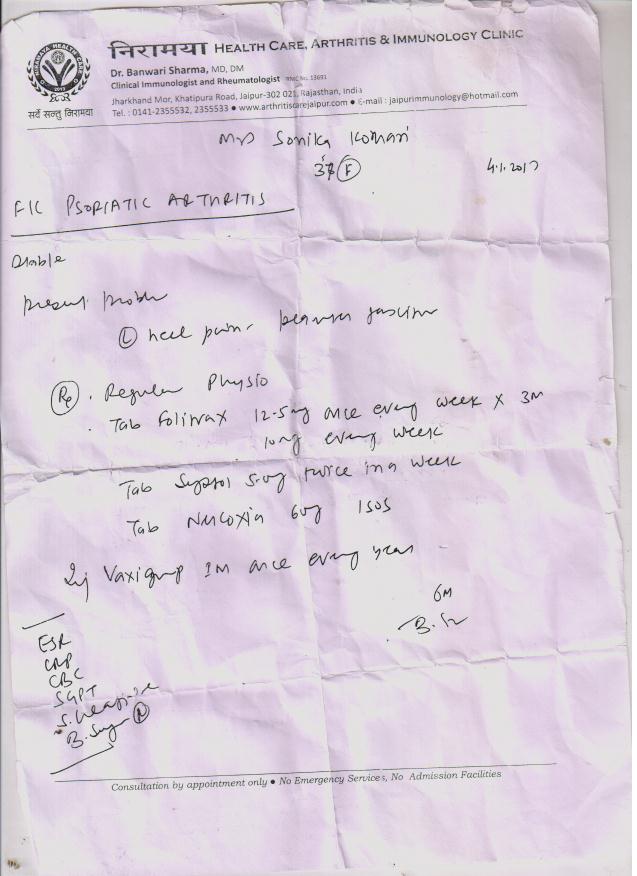 निरामया HEALTH CARE, ARTHRITIS & IMMUNOLOGY CLINIC
NIRAMAYA HEALTH CARE
2013
सर्वे सन्तु निरामया
Dr. Banwari Sharma, MD, DM
Clinical Immunologist and Rheumatologist RMC No. 13691
Jharkhand Mor, Khatipura Road, Jaipur-302 021, Rajasthan, India
Tel. : 0141-2355532, 2355533 ● www.arthritiscarejaipur.com ● E-mail : jaipurimmunology@hotmail.com
Mrs Sonika Kumari
37 F
4.1.2017
PSORIATIC ARTHRITIS
Stable
Present problem
L heel pain - plantar fasciitis
Regular Physio
Tab Folitrax 12.5mg once every week X 3M
10mg every week
Tab 5mg twice in a week
Tab Nucoxia 60mg 1SOS
Inj Vaxigrip IM once every year
6M
ESR
CRP
CBC
SGPT
S. Creatinine
B. Sugar R
Consultation by appointment only ● No Emergency Services, No Admission Facilities